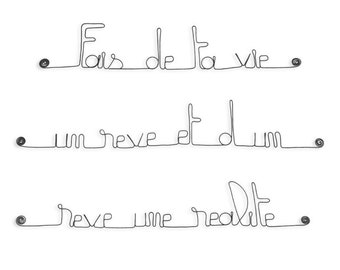 Fais de ta vie
un reve et d un
reve une realite